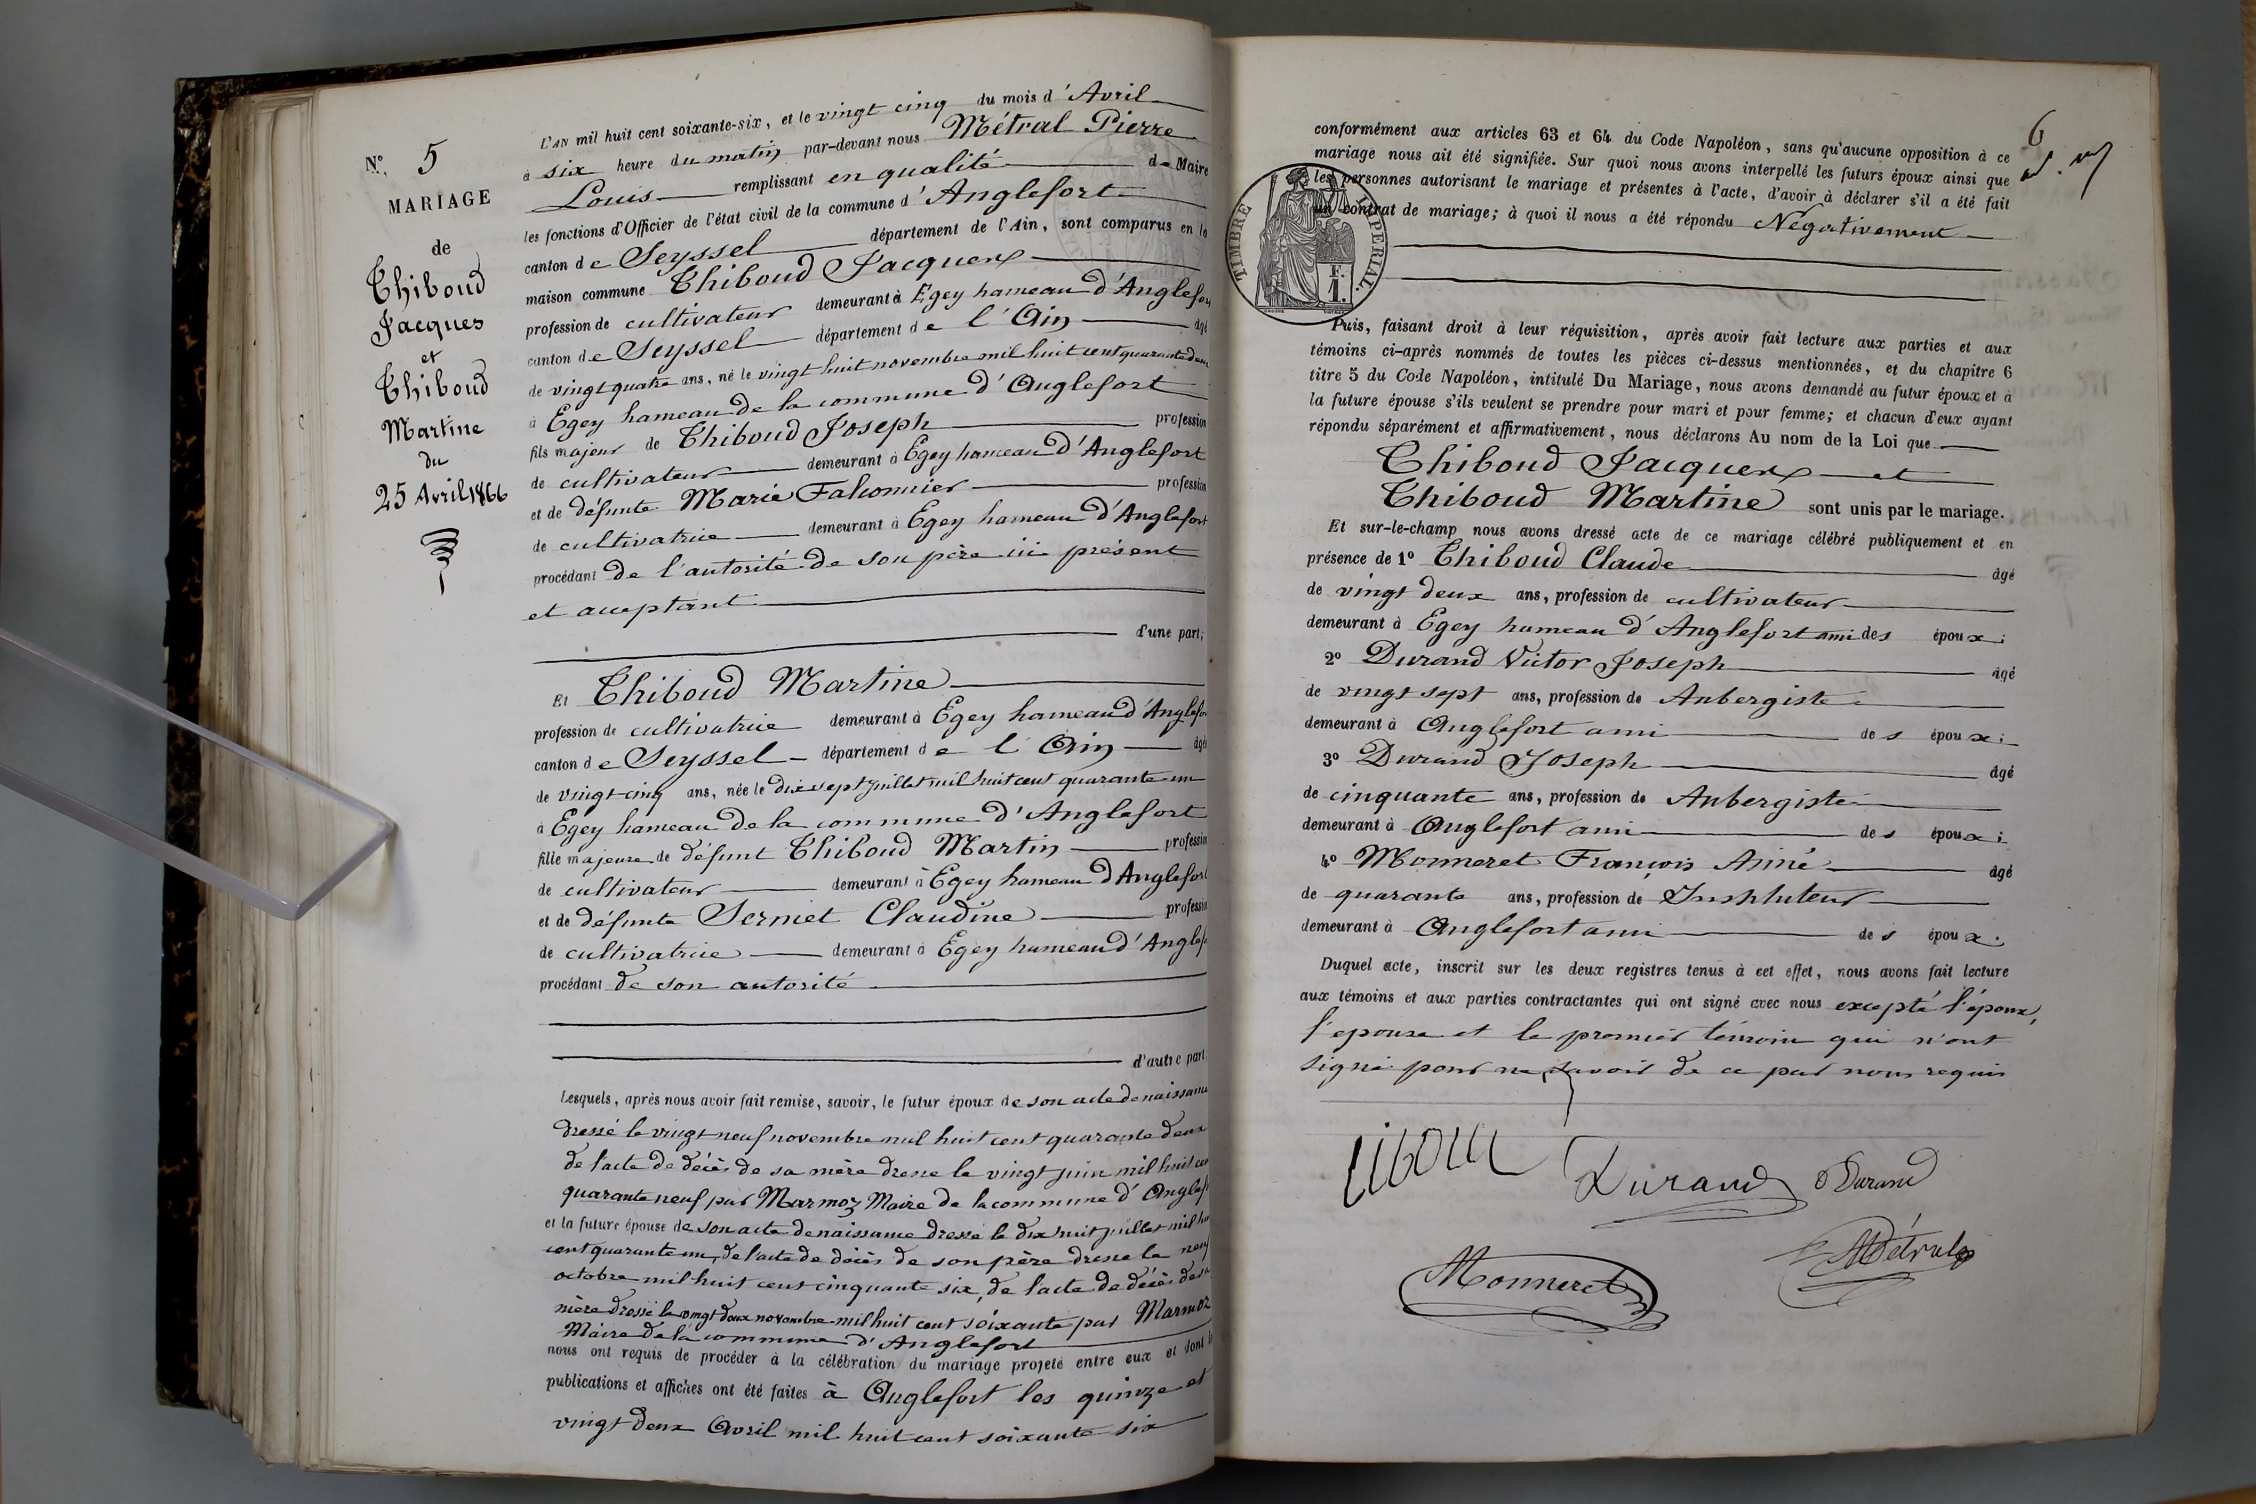 N.º 5
MARIAGE
de
Thiboud
Jacques
et
Thiboud
Martine
du
25 Avril 1866
L'AN mil huit cent soixante-six, et le vingt cinq du mois d'Avril
à six heure du matin par-devant nous Métral Pierre
Louis remplissant en qualité de Maire
les fonctions d'Officier de l'état civil de la commune d'Anglefort
canton de Seyssel département de l'Ain, sont comparus en la
maison commune Thiboud Jacques
profession de cultivateur demeurant à Egey hameau d'Anglefort
canton de Seyssel département de l'Ain âgé
de vingt quatre ans, né le vingt huit novembre mil huit cent quarante deux
à Egey hameau de la commune d'Anglefort
fils majeur de Thiboud Joseph profession
de cultivateur demeurant à Egey hameau d'Anglefort
et de défunte Marie Falconnier profession
de cultivatrice demeurant à Egey hameau d'Anglefort
procédant de l'autorité de son père ici présent
et acceptant
d'une part;
Et Thiboud Martine
profession de cultivatrice demeurant à Egey hameau d'Anglefort
canton de Seyssel département de l'Ain âgée
de vingt-cinq ans, née le dix sept juillet mil huit cent quarante un
à Egey hameau de la commune d'Anglefort
fille majeure de défunt Thiboud Martin profession
de cultivateur demeurant à Egey hameau d'Anglefort
et de défunte Sermet Claudine profession
de cultivatrice demeurant à Egey hameau d'Anglefort
procédant de son autorité
d'autre part
Lesquels, après nous avoir fait remise, savoir, le futur époux de son acte de naissance
dressé le vingt neuf novembre mil huit cent quarante deux
de l'acte de décès de sa mère dressé le vingt juin mil huit cent
quarante neuf par Marmoz Maire de la commune d'Anglefort
et la future épouse de son acte de naissance dressé le dix huit juillet mil huit
cent quarante un, de l'acte de décès de son père dressé le neuf
octobre mil huit cent cinquante six, de l'acte de décès de sa
mère dressé le vingt deux novembre mil huit cent soixante par Marmoz
Maire de la commune d'Anglefort
nous ont requis de procéder à la célébration du mariage projeté entre eux et dont les
publications et affiches ont été faites à Anglefort les quinze et
vingt deux Avril mil huit cent soixante six
6
conformément aux articles 63 et 64 du Code Napoléon, sans qu'aucune opposition à ce
mariage nous ait été signifiée. Sur quoi nous avons interpellé les futurs époux ainsi que
les personnes autorisant le mariage et présentes à l'acte, d'avoir à déclarer s'il a été fait
un contrat de mariage; à quoi il nous a été répondu Négativement
TIMBRE IMPERIAL.
F.
1.
Puis, faisant droit à leur réquisition, après avoir fait lecture aux parties et aux
témoins ci-après nommés de toutes les pièces ci-dessus mentionnées, et du chapitre 6
titre 5 du Code Napoléon, intitulé Du Mariage, nous avons demandé au futur époux et à
la future épouse s'ils veulent se prendre pour mari et pour femme; et chacun d'eux ayant
répondu séparément et affirmativement, nous déclarons Au nom de la Loi que
Thiboud Jacques et
Thiboud Martine sont unis par le mariage.
Et sur-le-champ nous avons dressé acte de ce mariage célébré publiquement et en
présence de 1º Thiboud Claude âgé
de vingt deux ans, profession de cultivateur
demeurant à Egey hameau d'Anglefort ami des époux;
2º Durand Victor Joseph âgé
de vingt sept ans, profession de Aubergiste
demeurant à Anglefort ami des époux;
3º Durand Joseph âgé
de cinquante ans, profession de Aubergiste
demeurant à Anglefort ami des époux;
4º Monneret François Aimé âgé
de quarante ans, profession de Instituteur
demeurant à Anglefort ami des époux.
Duquel acte, inscrit sur les deux registres tenus à cet effet, nous avons fait lecture
aux témoins et aux parties contractantes qui ont signé avec nous excepté l'époux,
l'epouse et le premier témoin qui n'ont
signé pour ne savoir de ce par nous requis
Durand Durand
Monneret Métral